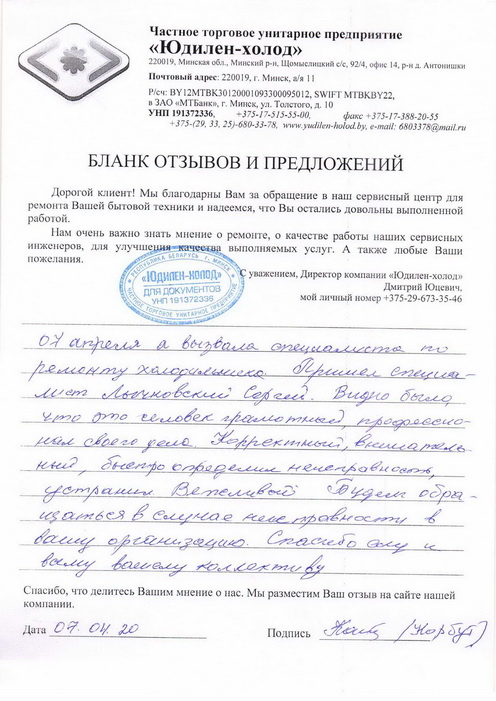 Частное торговое унитарное предприятие
«Юдилен-холод»
220019, Минская обл., Минский р-н, Щомыслицкий с/с, 92/4, офис 14, р-н д. Антонишки
Почтовый адрес: 220019, г. Минск, а/я 11
Р/сч: BY12MTBK30120001093300095012, SWIFT MTBKBY22,
в ЗАО «МТБанк», г. Минск, ул. Толстого, д. 10
УНП 191372336, +375-17-515-55-00, факс +375-17-388-20-55
+375-(29, 33, 25)-680-33-78, www.yudilen-holod.by, e-mail: 6803378@mail.ru
БЛАНК ОТЗЫВОВ И ПРЕДЛОЖЕНИЙ
Дорогой клиент! Мы благодарны Вам за обращение в наш сервисный центр для
ремонта Вашей бытовой техники и надеемся, что Вы остались довольны выполненной
работой.
Нам очень важно знать мнение о ремонте, о качестве работы наших сервисных
инженеров, для улучшения качества выполняемых услуг. А также любые Ваши
пожелания.
РЕСПУБЛИКА БЕЛАРУСЬ Г. МИНСК
«ЮДИЛЕН-ХОЛОД»
ДЛЯ ДОКУМЕНТОВ
УНП 191372336
ЧАСТНОЕ ТОРГОВОЕ УНИТАРНОЕ ПРЕДПРИЯТИЕ
С уважением, Директор компании «Юдилен-холод»
Дмитрий Юцевич,
мой личный номер +375-29-673-35-46
07 апреля я вызвала специалиста по
ремонту холодильника. Пришел специа-
лист Сергей. Видно было,
что это человек грамотный, профессио-
нал своего дела. Корректный, вниматель-
ный, быстро определил неисправность,
устранил. Вежливый. Будем обра-
щаться в случае неисправности в
вашу организацию. Спасибо ему и
всему вашему коллективу
Спасибо, что делитесь Вашим мнением о нас. Мы разместим Ваш отзыв на сайте нашей
компании.
Дата 07.04.20 Подпись (Корбут)